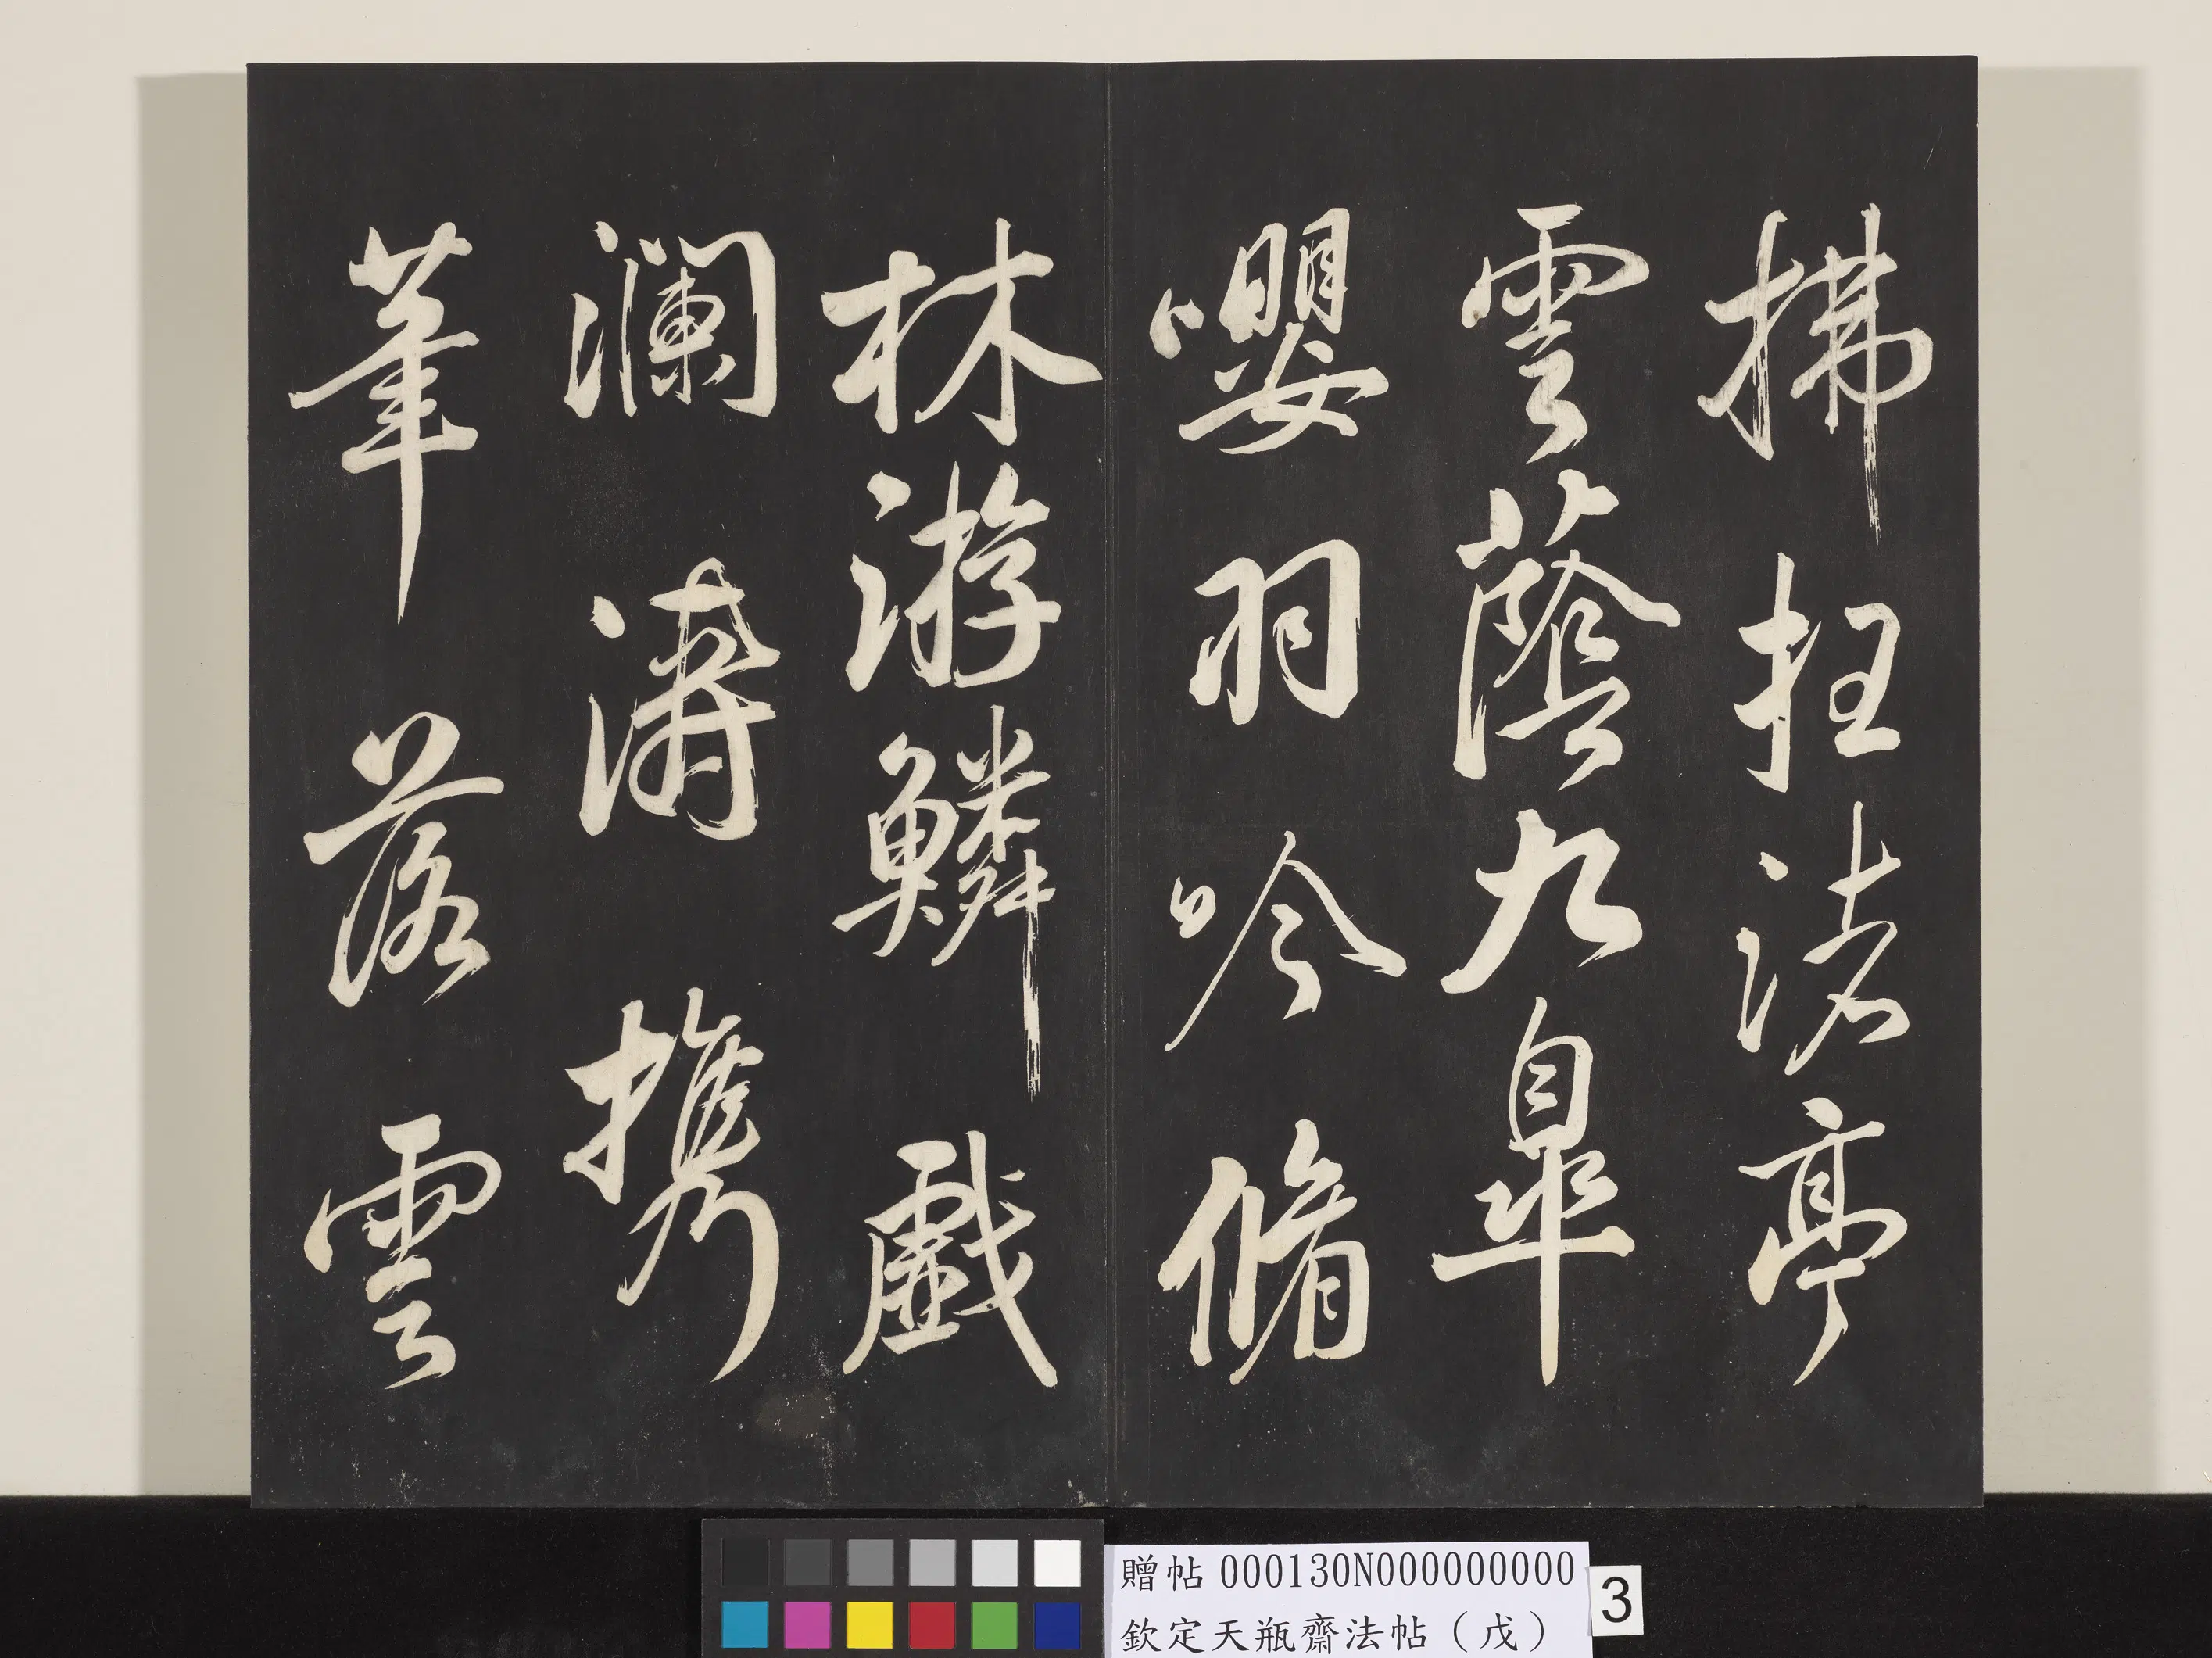 拂枉渚亭
雲蔭九皐
嚶羽吟脩
林游鱗戲
瀾濤携
筆落雲
贈帖 000130N000000000
欽定天瓶齋法帖（戊）
3